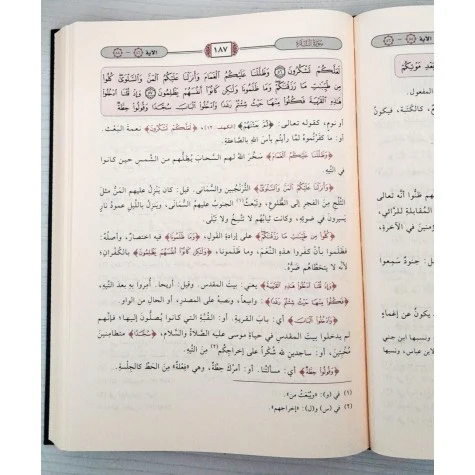 ١٨٧
لَعَلَّكُمْ تَشْكُرُونَ وَظَلَّلْنَا عَلَيْكُمُ الْغَمَامَ وَأَنزَلْنَا عَلَيْكُمُ الْمَنَّ وَالسَّلْوَىٰ كُلُوا
مِن طَيِّبَاتِ مَا رَزَقْنَاكُمْ وَمَا ظَلَمُونَا وَلَٰكِن كَانُوا أَنفُسَهُمْ يَظْلِمُونَ وَإِذْ قُلْنَا ادْخُلُوا
هَٰذِهِ الْقَرْيَةَ فَكُلُوا مِنْهَا حَيْثُ شِئْتُمْ رَغَدًا وَادْخُلُوا الْبَابَ سُجَّدًا وَقُولُوا حِطَّةٌ
أو نومٍ، كقوله تعالى: ﴿ثُمَّ بَعَثْنَاهُمْ﴾ [الكهف: ١٢]، ﴿لَعَلَّكُمْ تَشْكُرُونَ﴾ نعمةَ البَعْث.
أو: ما كَفَرْتُموه لمَّا رأيتُم بأسَ اللهِ بالصَّاعقةِ.
﴿وَظَلَّلْنَا عَلَيْكُمُ الْغَمَامَ﴾ سخَّرَ اللهُ لهم السحابَ يظِلُّهم من الشَّمسِ حين كانوا
في التِّيهِ.
﴿وَأَنزَلْنَا عَلَيْكُمُ الْمَنَّ وَالسَّلْوَىٰ﴾ التَّرَنْجبين والسُّمَانَى. قيل: كان ينزلُ عليهم المَنُّ مثلَ
الثَّلْجِ من الفجرِ إلى الطُّلوعِ، وتبعثُ(١) الجنوبُ عليهم السُّمَانَى، وينزلُ بالليلِ عمودُ نارٍ
يسيرون في ضوئِهِ، وكانت ثيابُهم لا تتَّسِخُ ولا تَبْلَى.
﴿كُلُوا مِن طَيِّبَاتِ مَا رَزَقْنَاكُمْ﴾ على إرادةِ القولِ، ﴿وَمَا ظَلَمُونَا﴾ فيه اختصارٌ، وأصلُهُ:
فظَلَموا بأن كفروا هذه النِّعَمَ، وما ظَلَمونا، ﴿وَلَٰكِن كَانُوا أَنفُسَهُمْ يَظْلِمُونَ﴾ بالكُفْرانِ؛ لأنَّه
لا يتخطَّاهم ضَرُّهُ.
﴿وَإِذْ قُلْنَا ادْخُلُوا هَٰذِهِ الْقَرْيَةَ﴾ يعني: بيتَ المقدسِ. وقيل: أريحا. أُمِروا بهِ بعدَ التِّيهِ،
﴿فَكُلُوا مِنْهَا حَيْثُ شِئْتُمْ رَغَدًا﴾: واسعاً، ونصبُهُ على المصدرِ، أو الحالِ من الواوِ.
﴿وَادْخُلُوا الْبَابَ﴾ أي: بابَ القريةِ. أو: القُبَّةَ التي كانوا يُصلُّون إليها؛ فإنَّهم
لم يدخلوا بيتَ المقدسِ في حياةِ موسى عليه الصَّلاةُ والسَّلامُ، ﴿سُجَّدًا﴾ متطامِنِينَ
مُخْبِتينَ، أو: ساجدينَ للهِ شُكراً على إخراجِكُم(٢) مِنَ التِّيهِ.
﴿وَقُولُوا حِطَّةٌ﴾ أي: مسألتُنا. أو: أمرُكَ حِطَّةٌ، وهي «فِعْلَةٌ» مِنَ الحَطِّ كالجِلْسةِ.
(١) في (و): «ويبعث من».
(٢) في (س) و(ل): «إخراجهم».
الآية
بَعْدِ مَوْتِكُمْ
المفعول.
كالكَتَبة، فيكون
هم ظنُّوا أنَّه تعالى
المقابلة للرَّائي،
مؤمنين في الآخرة،
قيل: جندٌ سَمِعوا
يكونُ عن إغماءٍ
ونسبها ابن جني